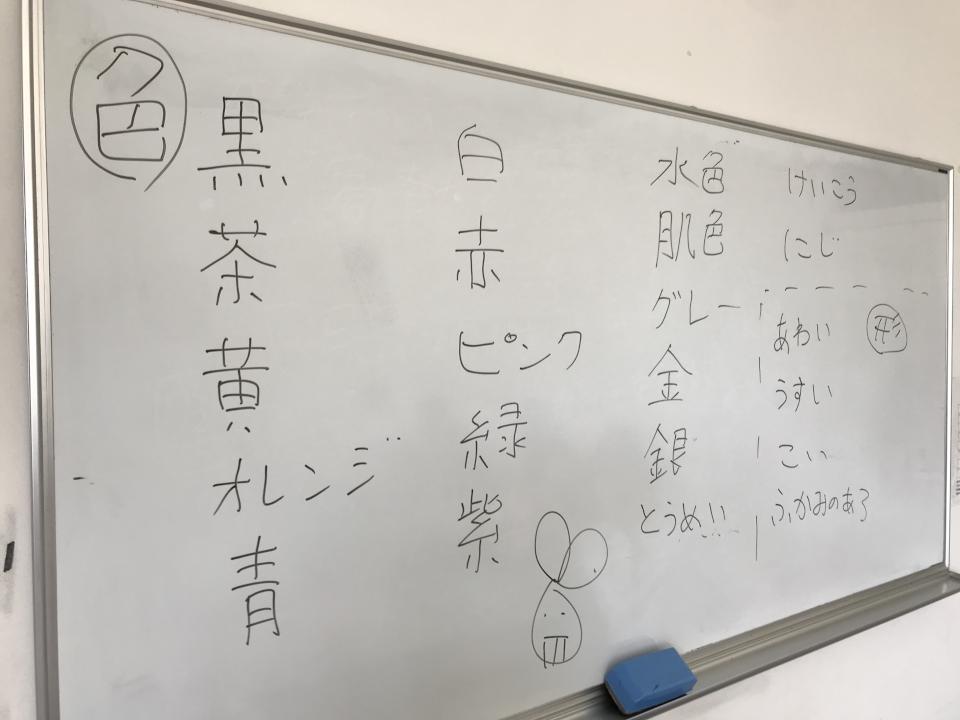 色
黒
茶
黄
オレンジ
青
白
赤
ピンク
緑
紫
水色
肌色
グレー
金
銀
とうめい
けいこう
にじ
あわい
うすい
こい
ふかみのある
形